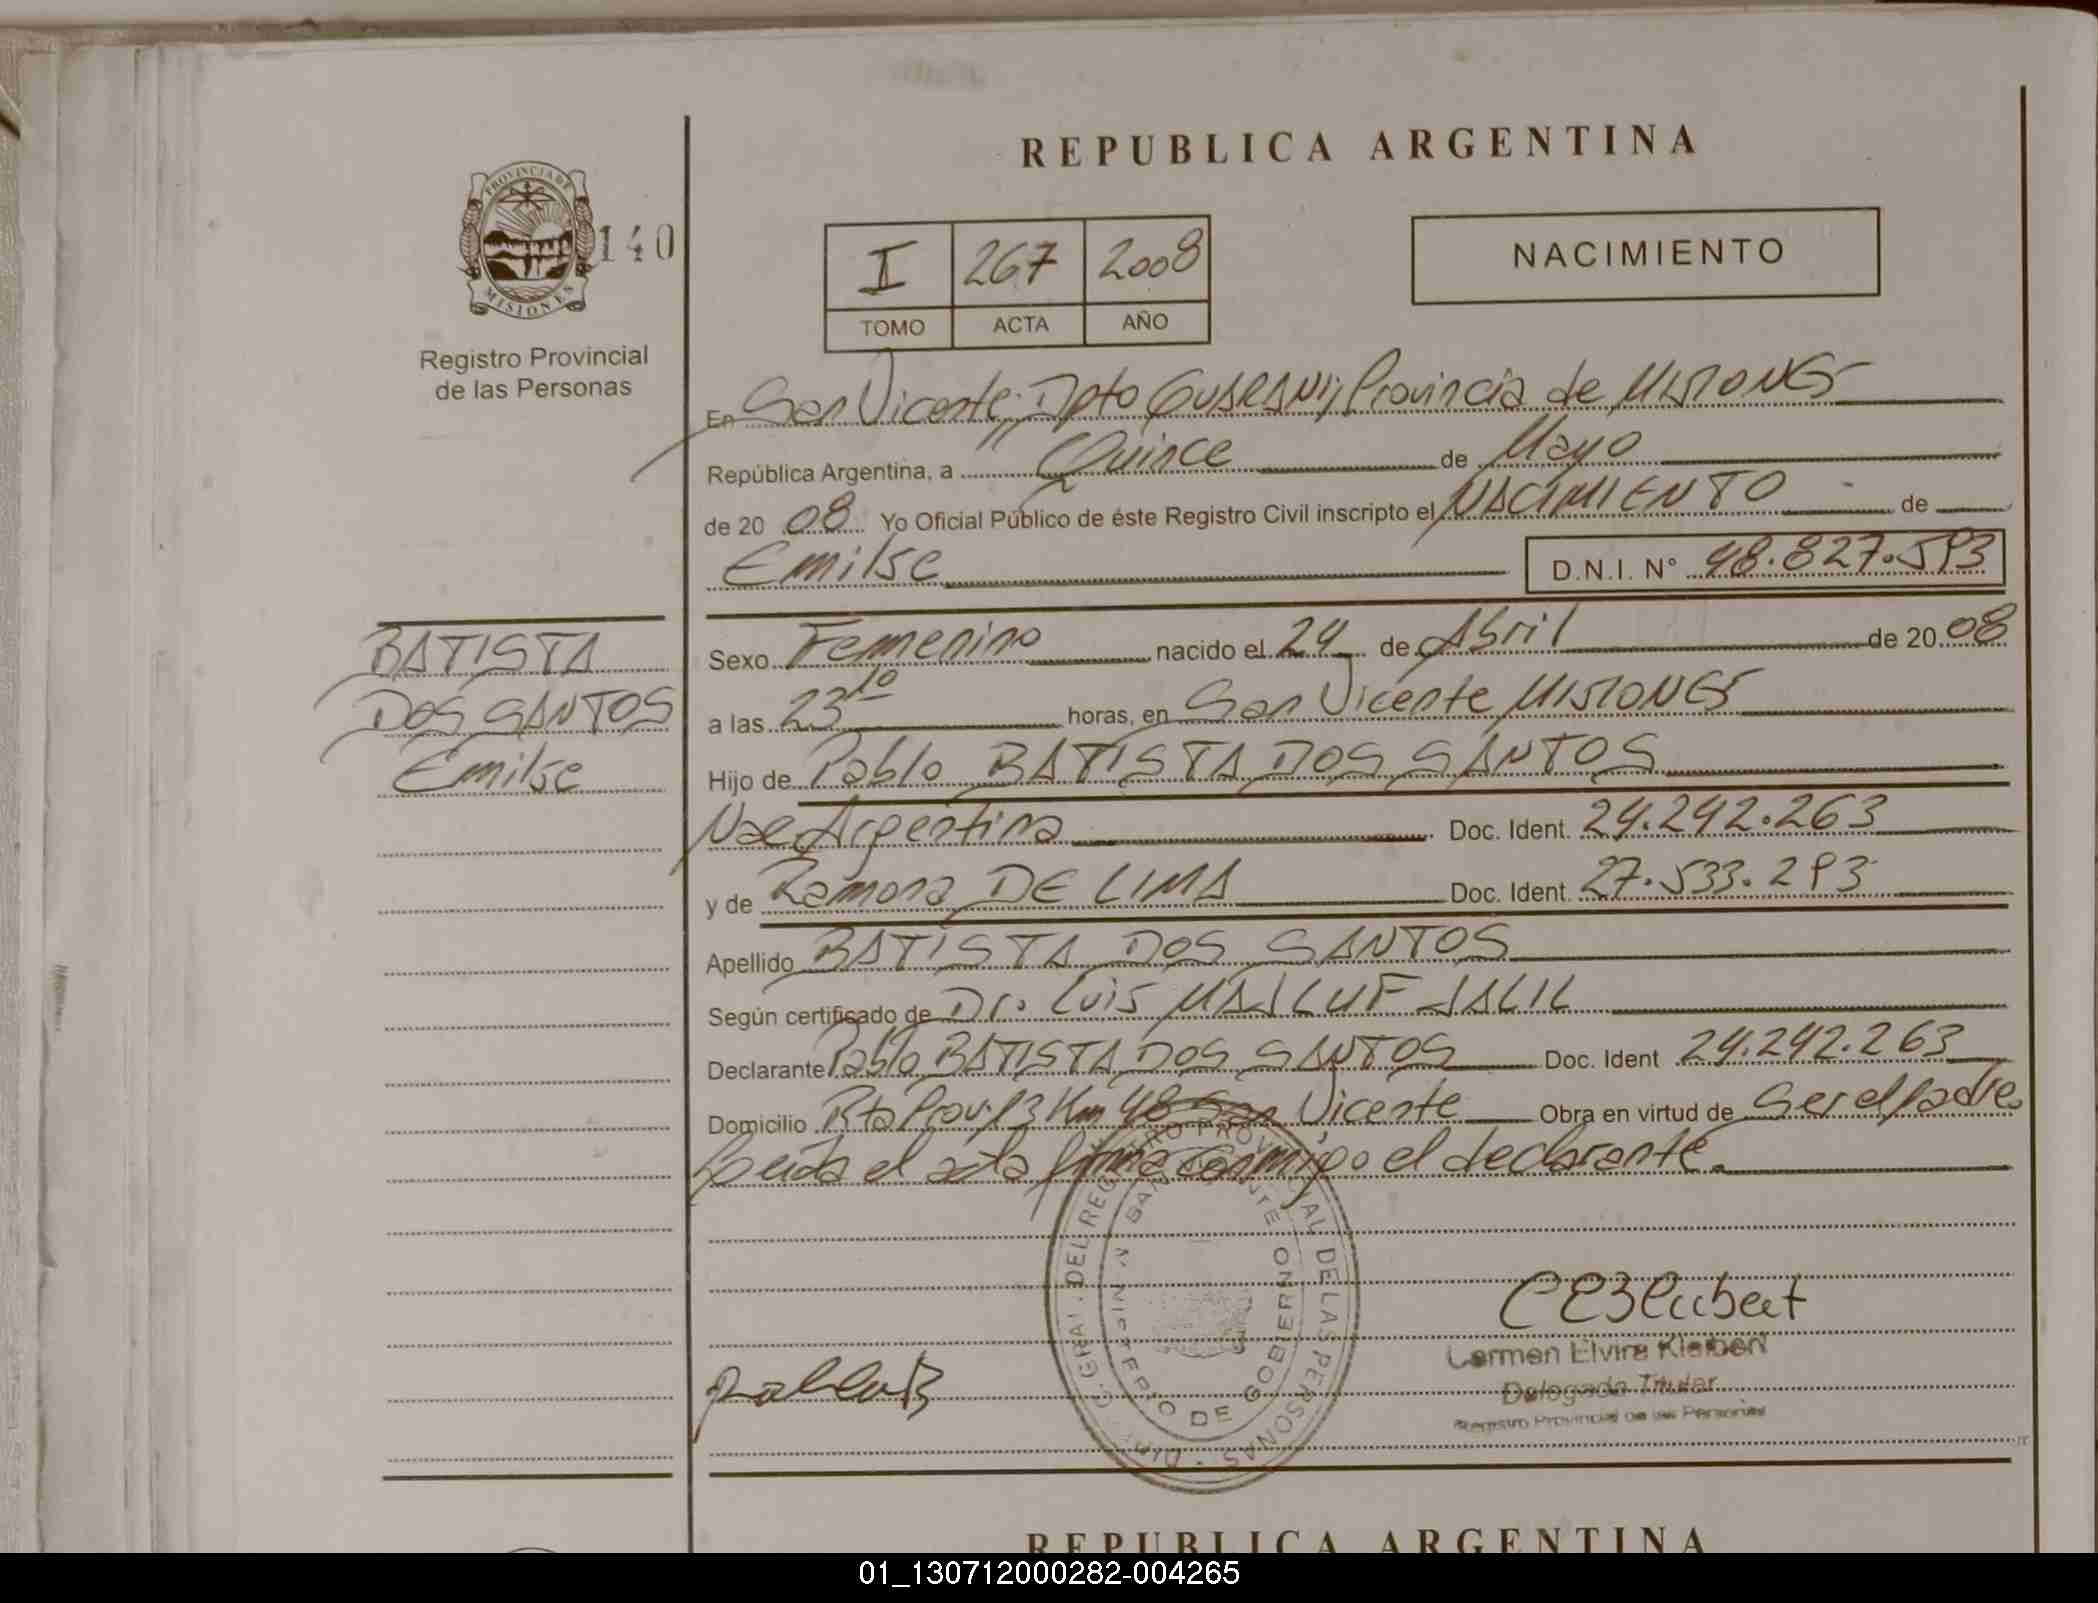 REPUBLICA ARGENTINA
PROVINCIA DE
MISIONES
140
Registro Provincial
de las Personas
I 267 2008
TOMO ACTA AÑO
NACIMIENTO
En San Vicente, Dpto GUARANI, Provincia de MISIONES
República Argentina, a Quince de Mayo
de 20 08 Yo Oficial Público de éste Registro Civil inscripto el NACIMIENTO de
Emilse D.N.I. Nº 48.827.593
BATISTA
DOS SANTOS
Emilse
Sexo Femenino nacido el 24 de Abril de 20 08
a las 23 10 horas, en San Vicente MISIONES
Hijo de Pablo BATISTA DOS SANTOS
Nac. Argentina Doc. Ident. 24.242.263
y de Ramona DE LIMA Doc. Ident. 27.533.293
Apellido BATISTA DOS SANTOS
Según certificado de Dr. Luis MAJLUF JALIL
Declarante Pablo BATISTA DOS SANTOS Doc. Ident 24.242.263
Domicilio Rta Prov. 13 Km 48 San Vicente Obra en virtud de Ser el padre
Leida el acta firma conmigo el declarante.
DEL REGISTRO PROVINCIAL DE LAS PERSONAS
SAN VICENTE
DE GOBIERNO
Pablo B
Carmen Elvira Kleibert
Delegada Titular
Registro Provincial de las Personas
REPUBLICA ARGENTINA
01_130712000282-004265